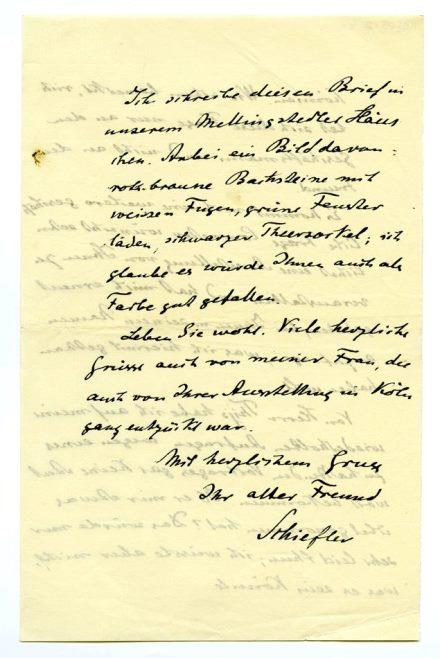 Ich schreibe diesen Brief in
unserem Mellingstedter Häus
chen. Anbei ein Bild davon:
rotbraune Backsteine mit
weissen Fugen, grüne Fenster
läden, schwarzer Theersockel; ich
glaube es würde Ihnen auch als
Farbe gut gefallen.
Leben Sie wohl. Viele herzliche
Grüsse auch von meiner Frau, die
auch von Ihrer Ausstellung in Köln
ganz entzückt war.
Mit herzlichem Gruss
Ihr alter Freund
Schiefler